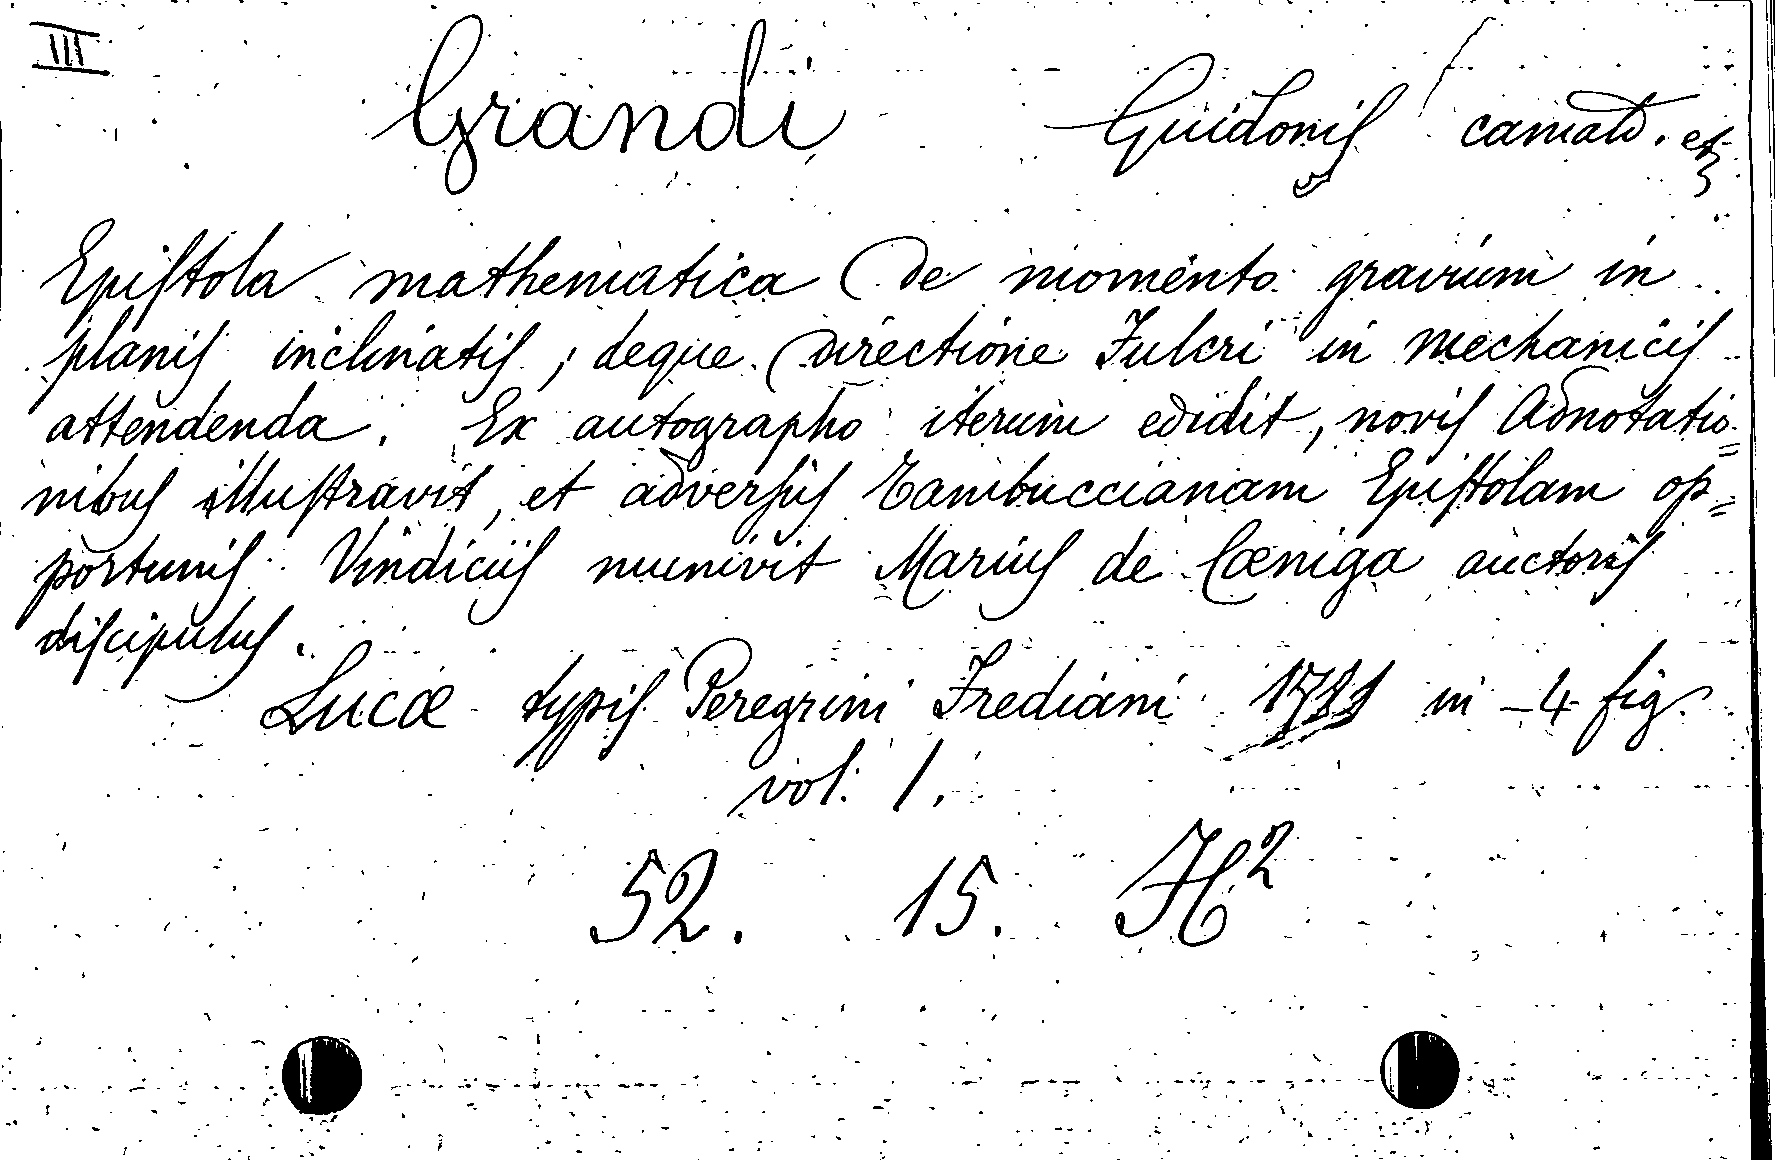 III
Grandi Guidonis camald. etc
Epistola mathematica De momento gravium in
planis inclinatis; deque Directione Fulcri in mechanicis
attendenda. Ex autographo iterum edidit, novis Adnotatio=
nibus illustravit, et adversus Zambuccianam Epistolam op=
portunis Vindiciis munivit Marius de Cæniga auctoris
discipulus.
Lucæ typis Peregrini Frediani 1711 in -4 fig.
vol. 1.
52. 15. H²